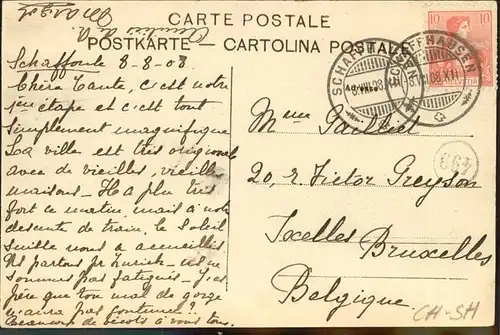 CARTE POSTALE
POSTKARTE — CARTOLINA POSTALE
Schaffouse 8-8-08
Chère Tante, c'est notre
1ère étape et c'est tout
simplement magnifique
La ville est très originale
avec de vieilles, vieilles
maisons – Il a plu très
fort ce matin, mais à notre
descente de train, le soleil
nous a accueillis
partons pr Zurich –
sommes pas fatigués – J'es
père que ton mal de gorge
n'aura pas continué?
Beaucoup de bécots à vous tous.
10
10
SCHAFFHAUSEN
8.VIII.08.
SCHAFFHAUSEN
8.VIII.08.XII
Mme
20, r. Victor Greyson
Ixelles Bruxelles
Belgique
CH-SH